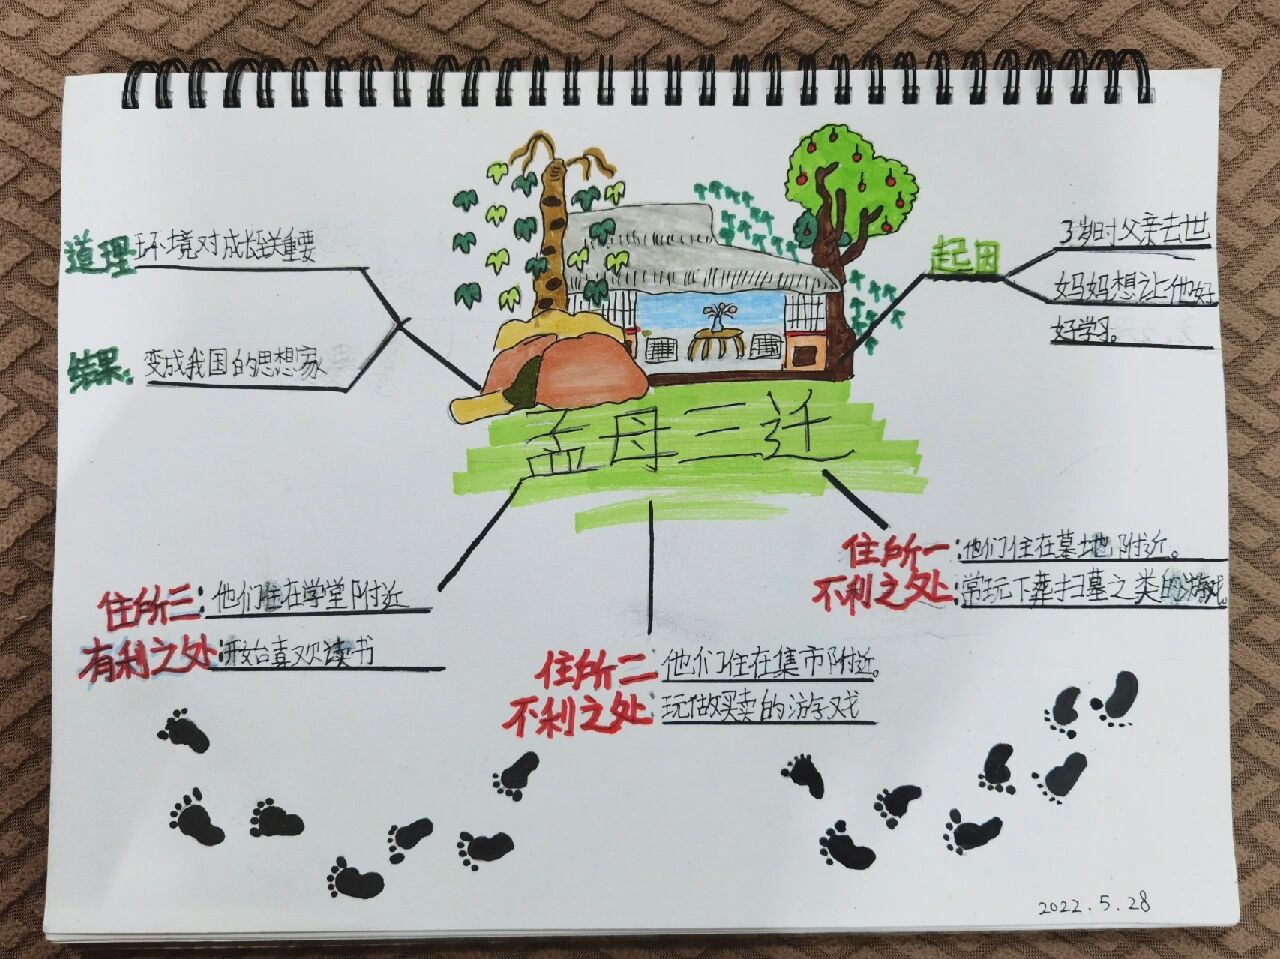 孟母三迁
起因
3岁时父亲去世
妈妈想让他好
好学习。
住所一:他们住在墓地附近。
不利之处:常玩下葬扫墓之类的游戏。
住所二:他们住在集市附近。
不利之处:玩做买卖的游戏
住所三:他们住在学堂附近
有利之处:开始喜欢读书
结果:变成我国的思想家
道理:环境对成长至关重要
2022.5.28